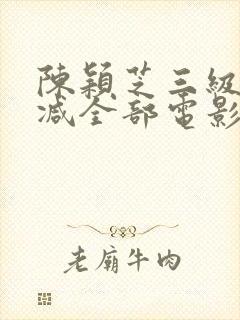 陳穎芝三級
減全部電影
老廟牛肉